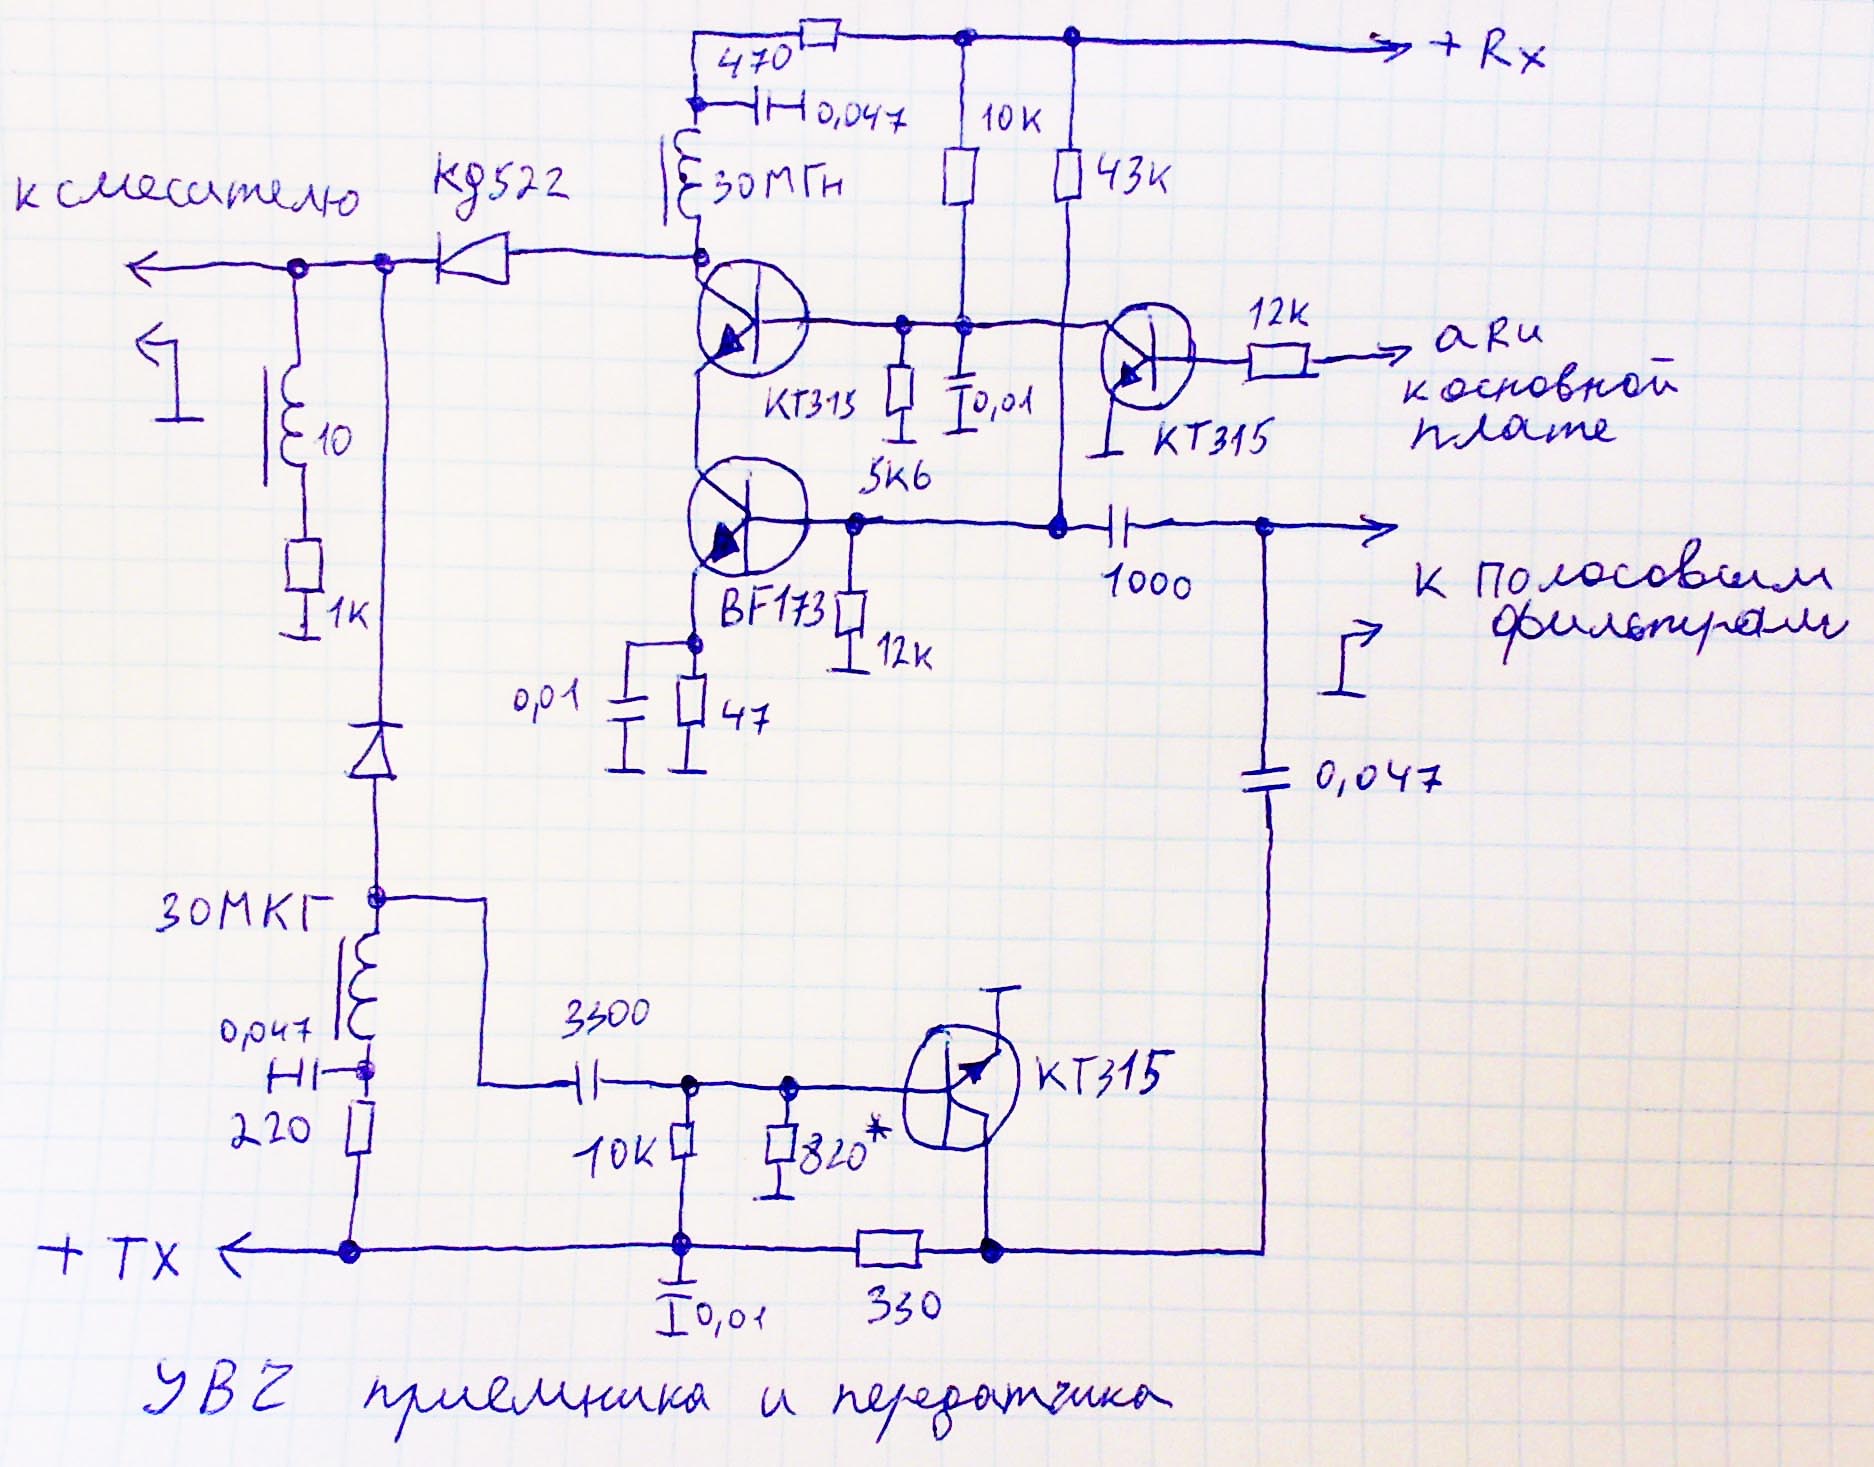 + Rx
470
0,047
10К
43К
30МГн
Кд522
к смесителю
12К
аRu
к основной
плате
КТ315
0,01
КТ315
5К6
10
1К
BF173
12К
1000
к полосовым
фильтрам
0,01
47
0,047
30МКГ
0,047
220
3300
КТ315
10К
820*
+ TX
0,01
330
УВЧ приемника и передатчика